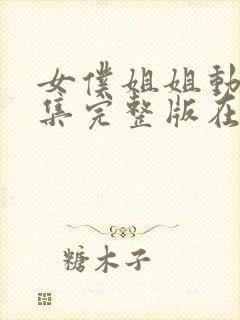 女僕姐姐動
集完整版在
糖木子